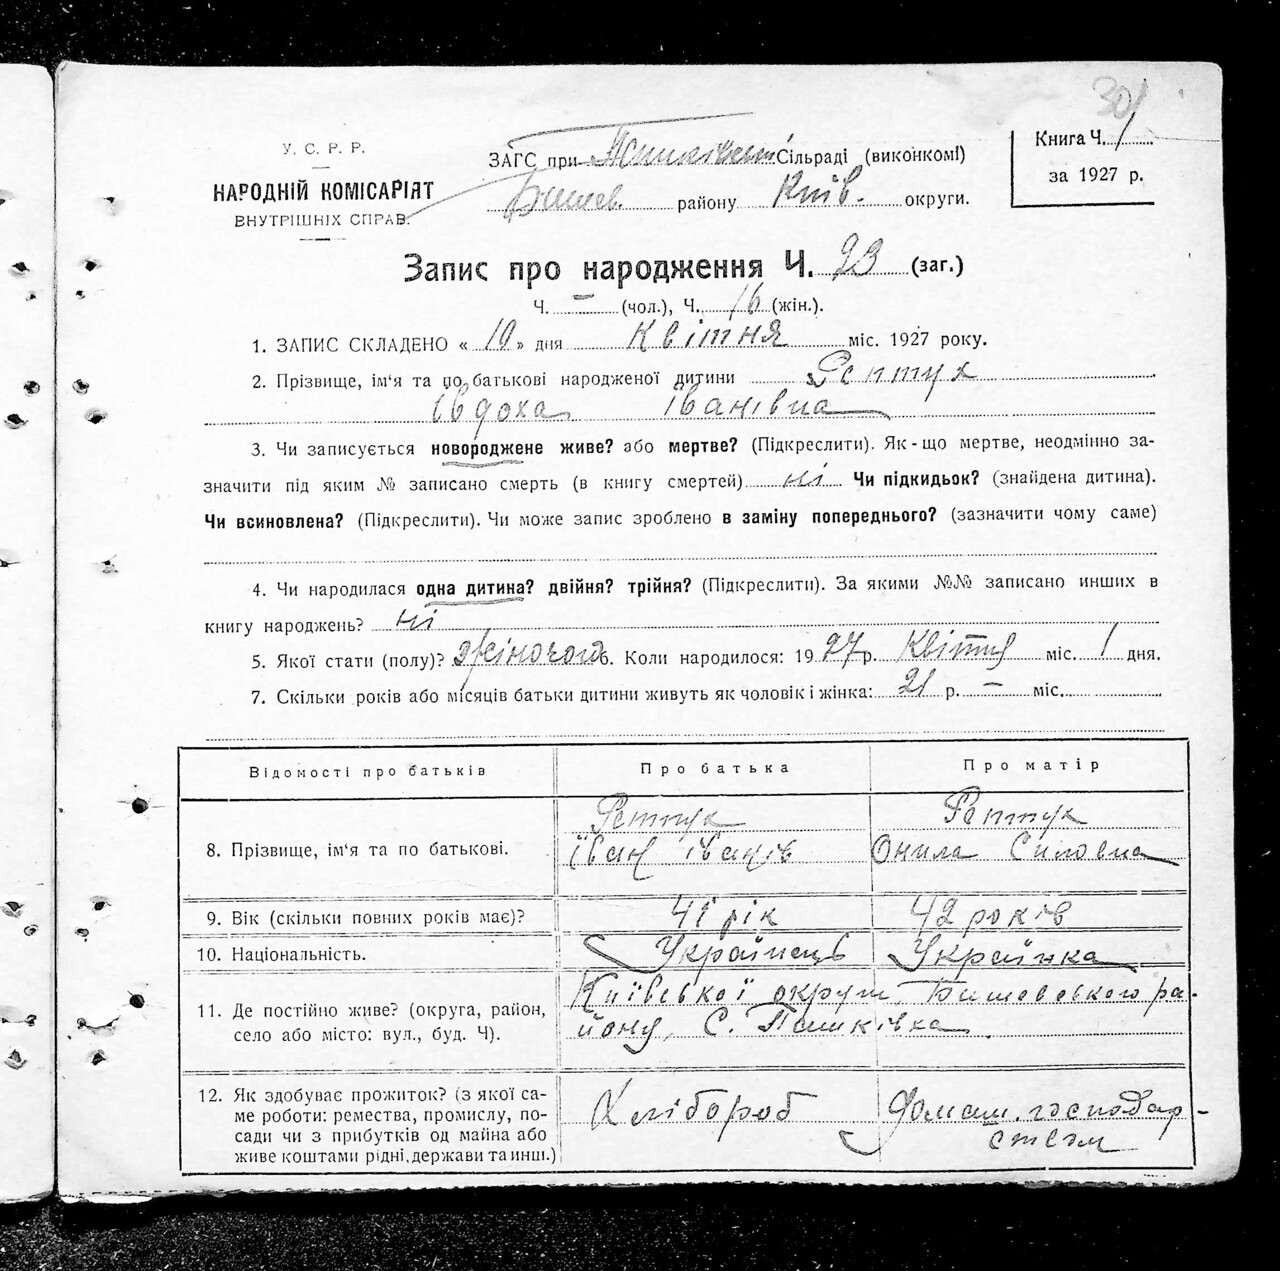 301
У. С. Р. Р.
НАРОДНІЙ КОМІСАРІЯТ
ВНУТРІШНІХ СПРАВ.
ЗАГС при Сільраді (виконкомі)
Бишев. району Київ. округи.
Книга Ч. 1
за 1927 р.
Запис про народження Ч. 23 (заг.)
Ч. — (чол.), Ч. 16 (жін.).
1. ЗАПИС СКЛАДЕНО « 10 » дня Квітня міс. 1927 року.
2. Прізвище, ім‘я та по батькові народженої дитини Рептух
Івдоха Іванівна
3. Чи записується новороджене живе? або мертве? (Підкреслити). Як-що мертве, неодмінно за-
значити під яким № записано смерть (в книгу смертей) ні Чи підкидьок? (знайдена дитина).
Чи всиновлена? (Підкреслити). Чи може запис зроблено в заміну попереднього? (зазначити чому саме)
4. Чи народилася одна дитина? двійня? трійня? (Підкреслити). За якими №№ записано инших в
книгу народжень? ні
5. Якої стати (полу)? жіночого 6. Коли народилося: 1927 р. Квітня міс. 1 дня.
7. Скільки років або місяців батьки дитини живуть як чоловік і жінка: 21 р. — міс.
Відомості про батьків Про батька Про матір
8. Прізвище, ім‘я та по батькові. Рептух Рептух
Іван Іванів Онила Силовна
9. Вік (скільки повних років має)? 41 рік 42 років
10. Національність. Українець Українка
11. Де постійно живе? (округа, район,
село або місто: вул., буд. Ч).
Київської округи, Бишевського ра-
йону, С. Пашківка
12. Як здобуває прожиток? (з якої са-
ме роботи: ремества, промислу, по-
сади чи з прибутків од майна або
живе коштами рідні, держави та инш.)
Хлібороб Домаш. господар-
ством